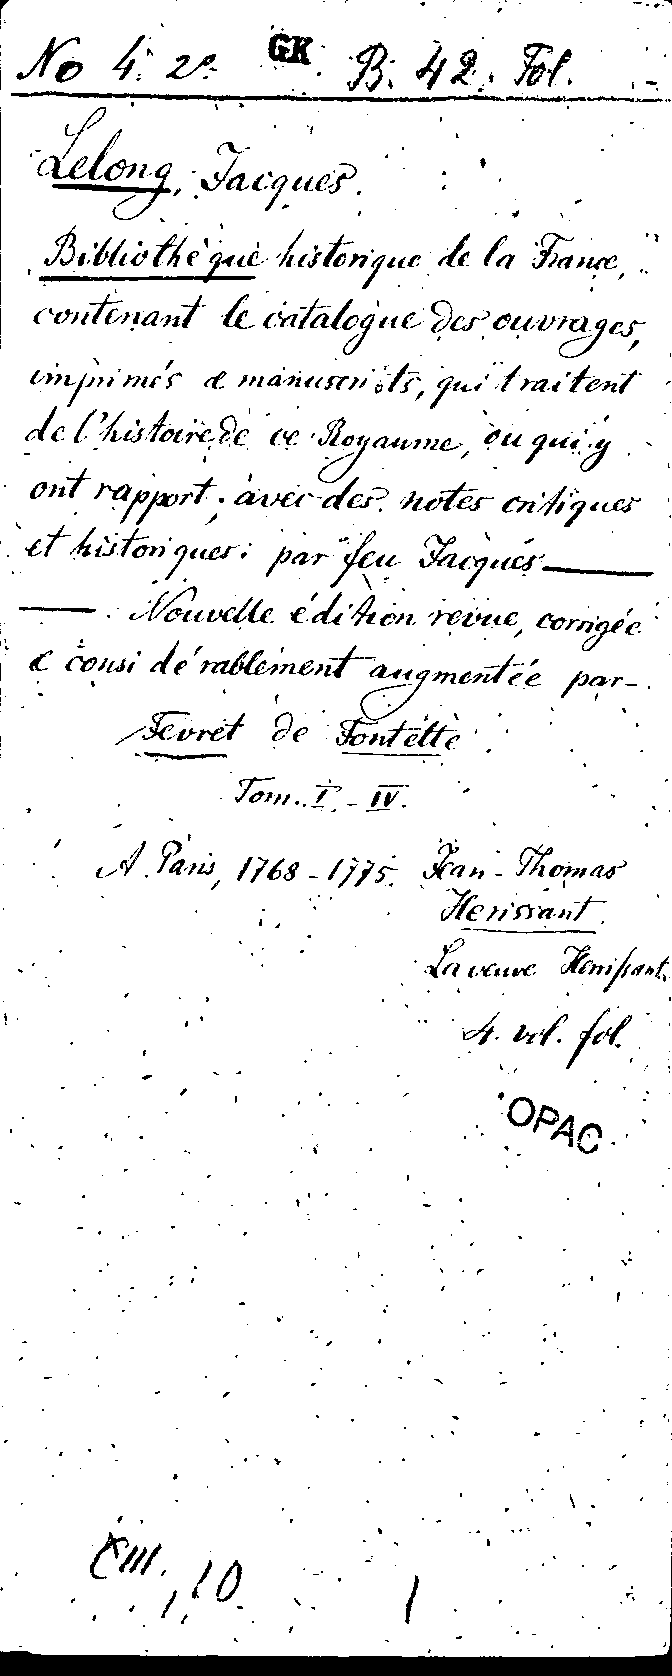 No 4. 2o. GK B. 42. Fol.
Lelong, Jacques.
Bibliothèque historique de la France,
contenant le catalogue des ouvrages,
imprimés & manuscripts, qui traitent
de l'histoire de ce Royaume, ou qui y
ont rapport; avec des notes critiques
et historiques: par feu Jacques ———
———. Nouvelle édition revue, corrigée
& considérablement augmentée par
Fevret de Fontette
Tom. I - IV.
A Paris, 1768-1775. Jean-Thomas
Herissant.
La veuve Herissant.
4. vol. fol.
OPAC
XIII.
, 10
1